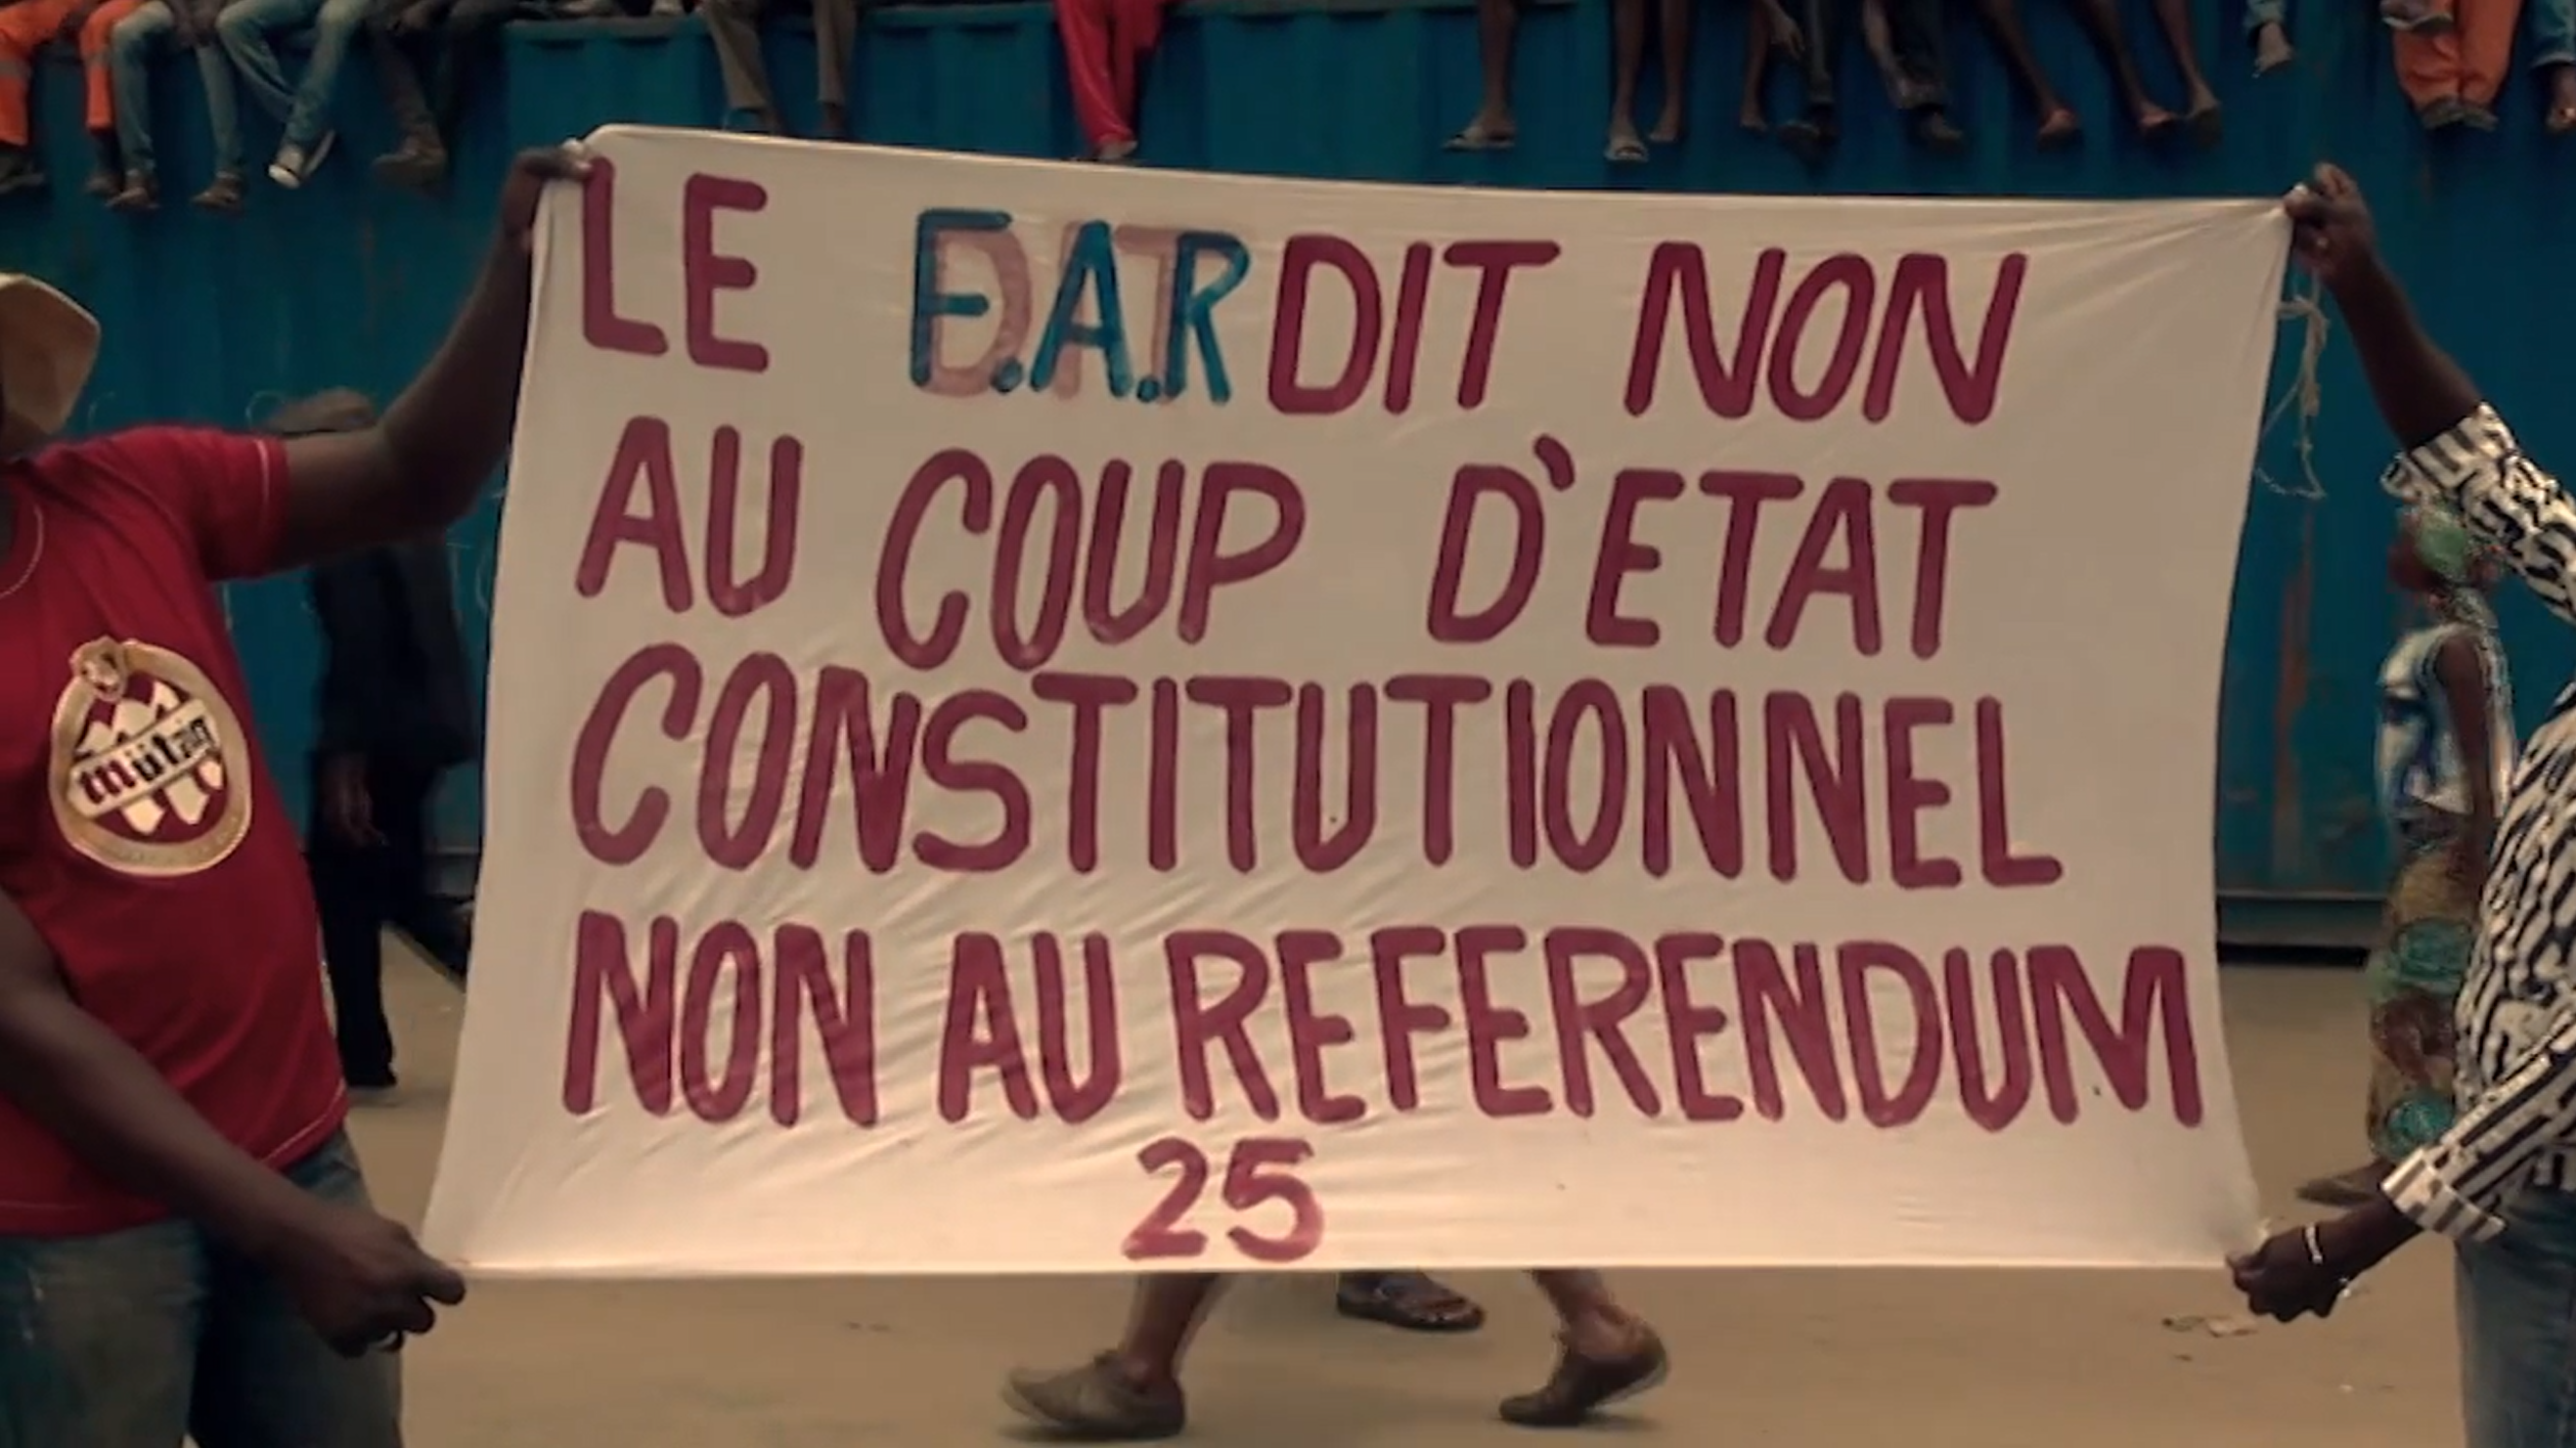 LE F.A.R DIT NON
AU COUP D'ETAT
CONSTITUTIONNEL
NON AU REFERENDUM
25
mützig